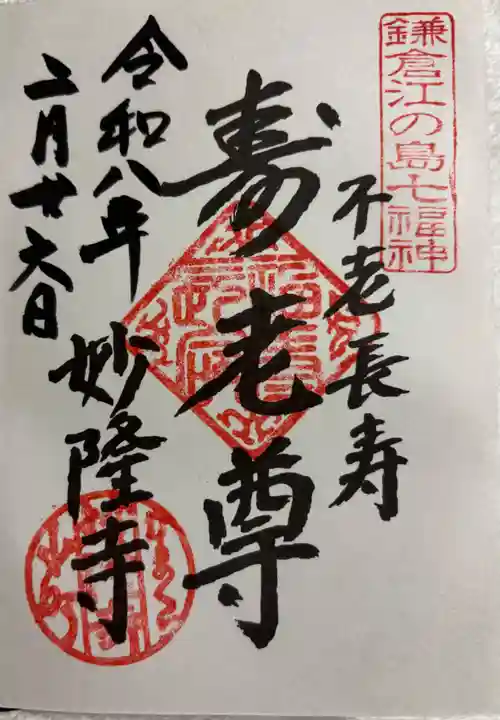 鎌倉江の島七福神
不老長寿
寿老尊
令和八年
二月廿六日
妙隆寺